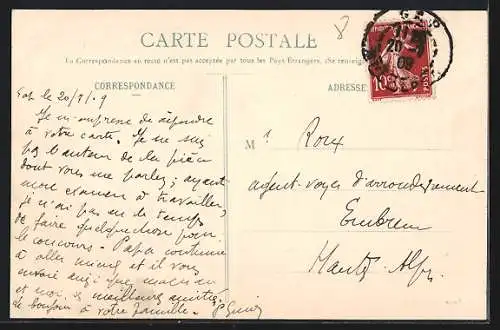 8
CARTE POSTALE
La Correspondance au recto n'est pas acceptée par tous les Pays Etrangers. (Se renseigner
CORRESPONDANCE
ADRESSE
GAP
20
09
10
POSTES
Gap le 20/9/09
Je m'empresse de répondre
à votre carte. Je ne suis
pas l'auteur de la pièce
dont vous me parlez ; ayant
mon examen à travailler,
je n'ai pas eu le temps
de faire quelque chose pour
le concours. Papa continue
à aller mieux et il vous
envoie ainsi que maman
et moi, ses meilleures amitiés
le bonjour à votre famille.
M. Roux
agent-voyer d'arrondissement
Embrun
Hautes Alpes